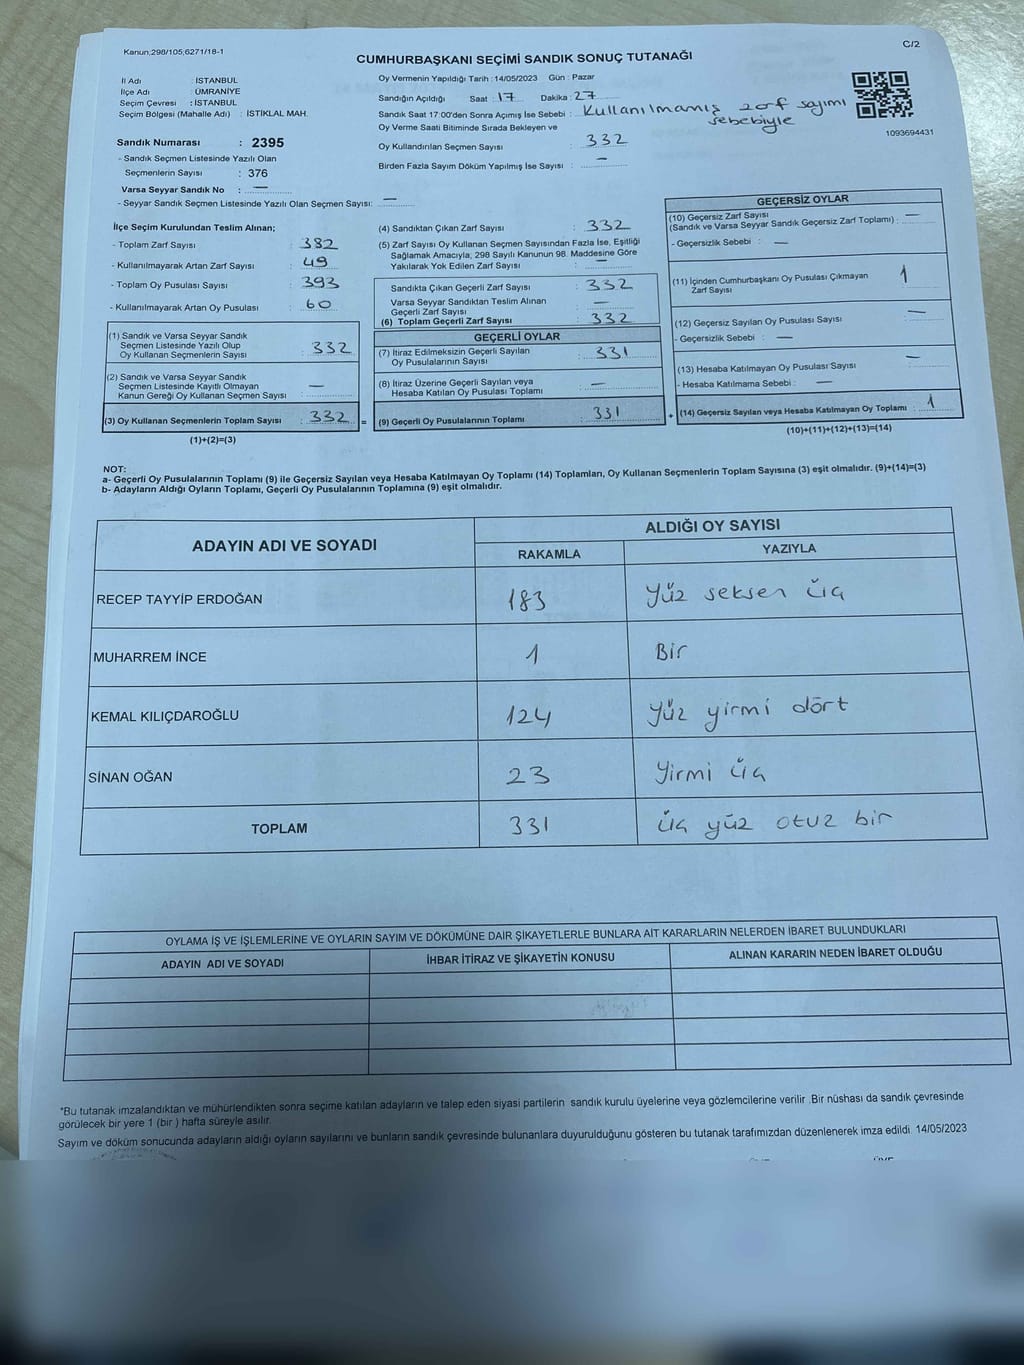 Kanun;298/105;6271/18-1
C/2
CUMHURBAŞKANI SEÇİMİ SANDIK SONUÇ TUTANAĞI
İl Adı : İSTANBUL
İlçe Adı : ÜMRANİYE
Seçim Çevresi : İSTANBUL
Seçim Bölgesi (Mahalle Adı) : İSTİKLAL MAH.
Oy Vermenin Yapıldığı Tarih :14/05/2023 Gün : Pazar
Sandığın Açıldığı Saat : 17 Dakika : 27
Sandık Saat 17:00'den Sonra Açımış İse Sebebi : Kullanılmamış zarf sayımı
sebebiyle
Oy Verme Saati Bitiminde Sırada Bekleyen ve
Oy Kullandırılan Seçmen Sayısı : 332
Birden Fazla Sayım Döküm Yapılmış İse Sayısı : —
1093694431
Sandık Numarası : 2395
- Sandık Seçmen Listesinde Yazılı Olan
Seçmenlerin Sayısı : 376
Varsa Seyyar Sandık No : —
- Seyyar Sandık Seçmen Listesinde Yazılı Olan Seçmen Sayısı: —
İlçe Seçim Kurulundan Teslim Alınan;
- Toplam Zarf Sayısı : 382
- Kullanılmayarak Artan Zarf Sayısı : 49
- Toplam Oy Pusulası Sayısı : 393
- Kullanılmayarak Artan Oy Pusulası : 60
(1) Sandık ve Varsa Seyyar Sandık
Seçmen Listesinde Yazılı Olup
Oy Kullanan Seçmenlerin Sayısı : 332
(2) Sandık ve Varsa Seyyar Sandık
Seçmen Listesinde Kayıtlı Olmayan
Kanun Gereği Oy Kullanan Seçmen Sayısı : —
(3) Oy Kullanan Seçmenlerin Toplam Sayısı : 332
(1)+(2)=(3)
(4) Sandıktan Çıkan Zarf Sayısı : 332
(5) Zarf Sayısı Oy Kullanan Seçmen Sayısından Fazla İse, Eşitliği
Sağlamak Amacıyla; 298 Sayılı Kanunun 98. Maddesine Göre
Yakılarak Yok Edilen Zarf Sayısı : —
Sandıkta Çıkan Geçerli Zarf Sayısı : 332
Varsa Seyyar Sandıktan Teslim Alınan
Geçerli Zarf Sayısı : —
(6) Toplam Geçerli Zarf Sayısı : 332
GEÇERLİ OYLAR
(7) İtiraz Edilmeksizin Geçerli Sayılan
Oy Pusulalarının Sayısı : 331
(8) İtiraz Üzerine Geçerli Sayılan veya
Hesaba Katılan Oy Pusulası Toplamı : —
= (9) Geçerli Oy Pusulalarının Toplamı : 331
GEÇERSİZ OYLAR
(10) Geçersiz Zarf Sayısı
(Sandık ve Varsa Seyyar Sandık Geçersiz Zarf Toplamı) : —
- Geçersizlik Sebebi : —
(11) İçinden Cumhurbaşkanı Oy Pusulası Çıkmayan
Zarf Sayısı : 1
(12) Geçersiz Sayılan Oy Pusulası Sayısı : —
- Geçersizlik Sebebi : —
(13) Hesaba Katılmayan Oy Pusulası Sayısı : —
- Hesaba Katılmama Sebebi : —
+ (14) Geçersiz Sayılan veya Hesaba Katılmayan Oy Toplamı : 1
(10)+(11)+(12)+(13)=(14)
NOT:
a- Geçerli Oy Pusulalarının Toplamı (9) ile Geçersiz Sayılan veya Hesaba Katılmayan Oy Toplamı (14) Toplamları, Oy Kullanan Seçmenlerin Toplam Sayısına (3) eşit olmalıdır. (9)+(14)=(3)
b- Adayların Aldığı Oyların Toplamı, Geçerli Oy Pusulalarının Toplamına (9) eşit olmalıdır.
ADAYIN ADI VE SOYADI
ALDIĞI OY SAYISI
RAKAMLA YAZIYLA
RECEP TAYYİP ERDOĞAN 183 Yüz seksen üç
MUHARREM İNCE 1 Bir
KEMAL KILIÇDAROĞLU 124 Yüz yirmi dört
SİNAN OĞAN 23 Yirmi üç
TOPLAM 331 üç yüz otuz bir
OYLAMA İŞ VE İŞLEMLERİNE VE OYLARIN SAYIM VE DÖKÜMÜNE DAİR ŞİKAYETLERLE BUNLARA AİT KARARLARIN NELERDEN İBARET BULUNDUKLARI
ADAYIN ADI VE SOYADI İHBAR İTİRAZ VE ŞİKAYETİN KONUSU ALINAN KARARIN NEDEN İBARET OLDUĞU
*Bu tutanak imzalandıktan ve mühürlendikten sonra seçime katılan adayların ve talep eden siyasi partilerin sandık kurulu üyelerine veya gözlemcilerine verilir .Bir nüshası da sandık çevresinde
görülecek bir yere 1 (bir ) hafta süreyle asılır.
Sayım ve döküm sonucunda adayların aldığı oyların sayılarını ve bunların sandık çevresinde bulunanlara duyurulduğunu gösteren bu tutanak tarafımızdan düzenlenerek imza edildi 14/05/2023